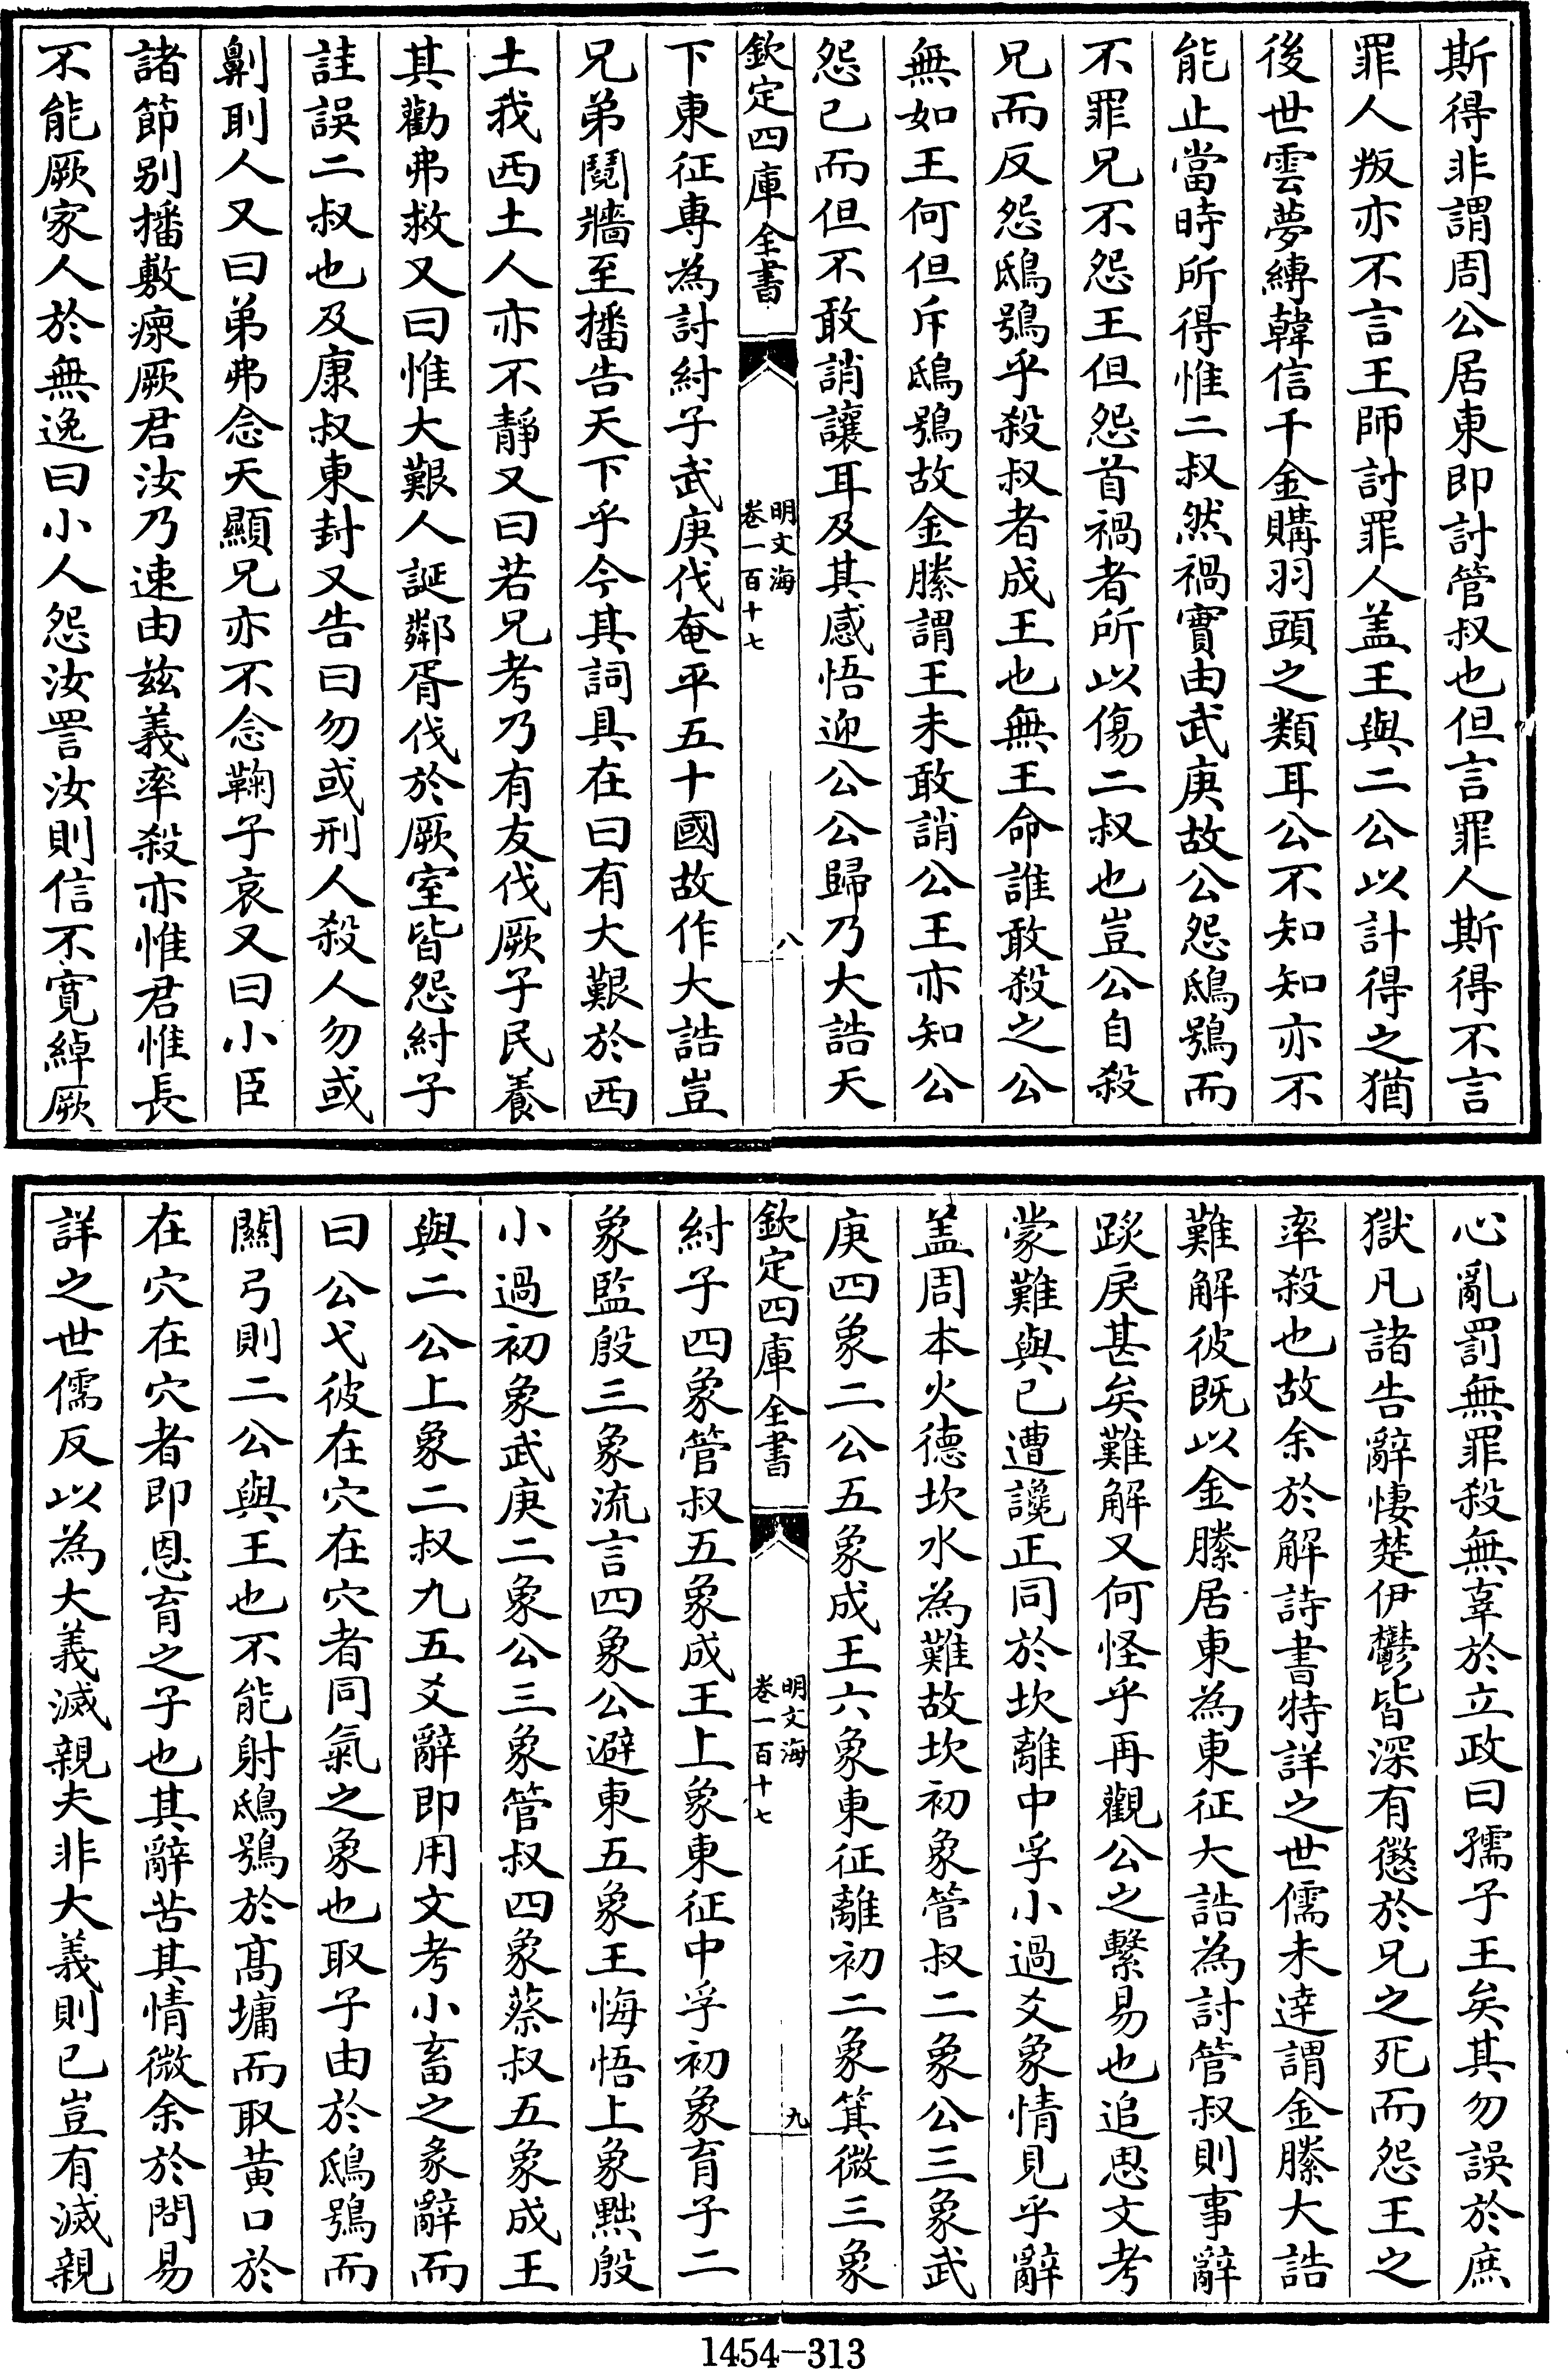 斯得非謂周公居東即討管叔也但言罪人斯得不言
罪人叛亦不言王師討罪人盖王與二公以計得之猶
後世雲夢縛韓信千金購羽頭之類耳公不知知亦不
能止當時所得惟二叔然禍實由武庚故公怨鴟鴞而
不罪兄不怨王但怨首禍者所以傷二叔也豈公自殺
兄而反怨鴟鴞乎殺叔者成王也無王命誰敢殺之公
無如王何但斥鴟鴞故金縢謂王未敢誚公王亦知公
怨已而但不敢誚讓耳及其感悟迎公公歸乃大誥天
欽定四庫全書
明文海
卷一百十七
八
下東征専為討紂子武庚伐奄平五十國故作大誥豈
兄弟鬩牆至播告天下乎今其詞具在曰有大艱於西
土我西土人亦不靜又曰若兄考乃有友伐厥子民養
其勸弗救又曰惟大艱人誕鄰胥伐於厥室皆怨紂子
詿誤二叔也及康叔東封又告曰勿或刑人殺人勿或
劓刵人又曰弟弗念天顯兄亦不念鞠子哀又曰小臣
諸節别播敷瘝厥君汝乃速由茲義率殺亦惟君惟長
不能厥家人於無逸曰小人怨汝詈汝則信不寛綽厥
心亂罰無罪殺無辜於立政曰孺子王矣其勿誤於庶
獄凡諸告辭悽楚伊鬱皆深有懲於兄之死而怨王之
率殺也故余於解詩書特詳之世儒未達謂金縢大誥
難解彼既以金縢居東為東征大誥為討管叔則事辭
踐戾甚矣難解又何怪乎再觀公之繫易也追思文考
蒙難與已遭讒正同於坎離中孚小過爻象情見乎辭
盖周本火德坎水為難故坎初象管叔二象公三象武
庚四象二公五象成王六象東征離初二象箕微三象
欽定四庫全書
明文海
卷一百十七
九
紂子四象管叔五象成王上象東征中孚初象育子二
象監殷三象流言四象公避東五象王悔悟上象黜殷
小過初象武庚二象公三象管叔四象蔡叔五象成王
與二公上象二叔九五爻辭即用文考小畜之彖辭而
曰公弋彼在穴在穴者同氣之象也取子由於鴟鴞而
關弓則二公與王也不能射鴟鴞於髙墉而取黄口於
在穴在穴者即恩育之子也其辭苦其情微余於問易
詳之世儒反以為大義滅親夫非大義則已豈有滅親
1454-313